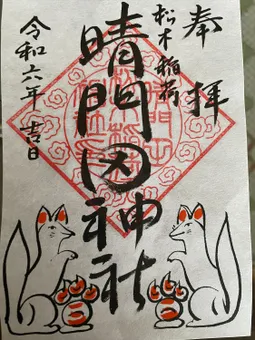 奉拝
松木稲荷
晴門田神社
令和六年吉日